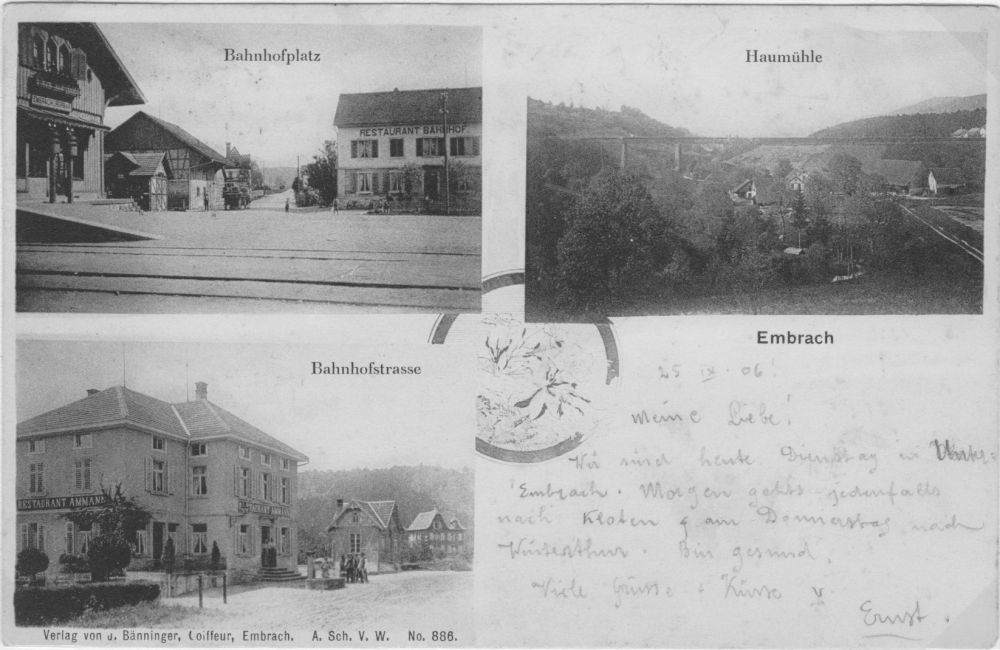 Bahnhofplatz
EMBRACH
RESTAURANT BAHNHOF.
Haumühle
Embrach
Bahnhofstrasse
RESTAURANT AMMANN
RESTAURANT AMMANN
25 IX. 06!
Meine Liebe!
Wir sind heute Dienstag in Unter=
Embrach. Morgen gehts jedenfalls
nach Kloten & am Donnerstag nach
Winterthur. Bin gesund.
Viele Grüsse & Küsse v
Ernst.
Verlag von J. Bänninger, Coiffeur, Embrach. A. Sch. V. W. No. 886.